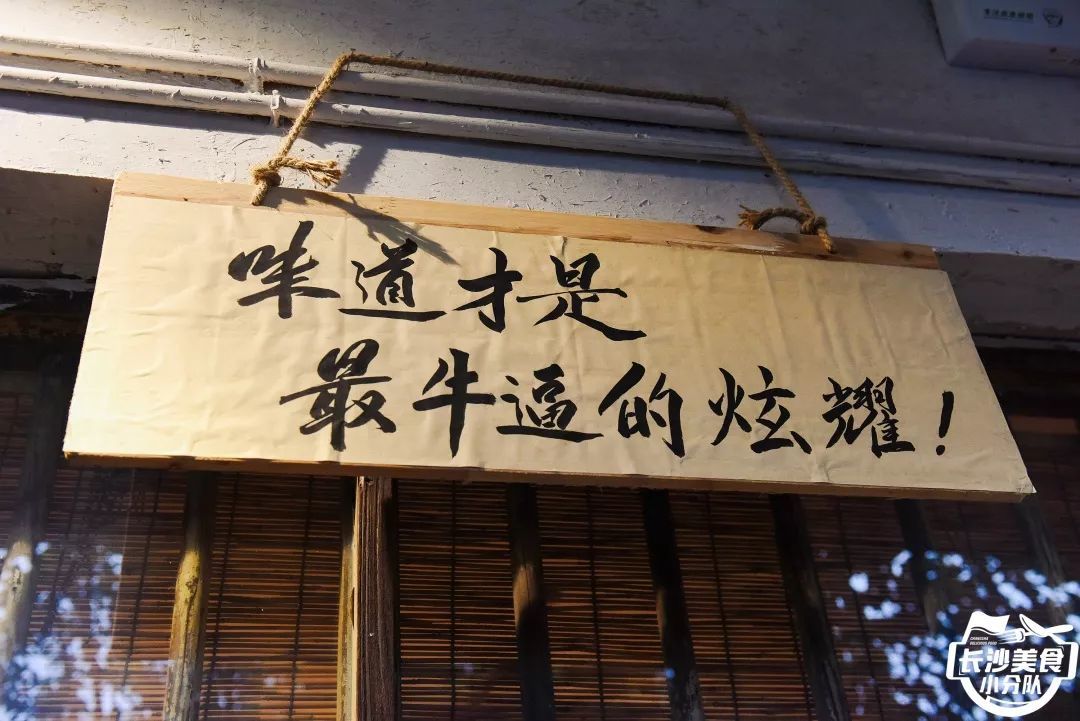 味道才是
最牛逼的炫耀!
CHANGSHA
DELICIOUS FOOD
长沙美食
小分队